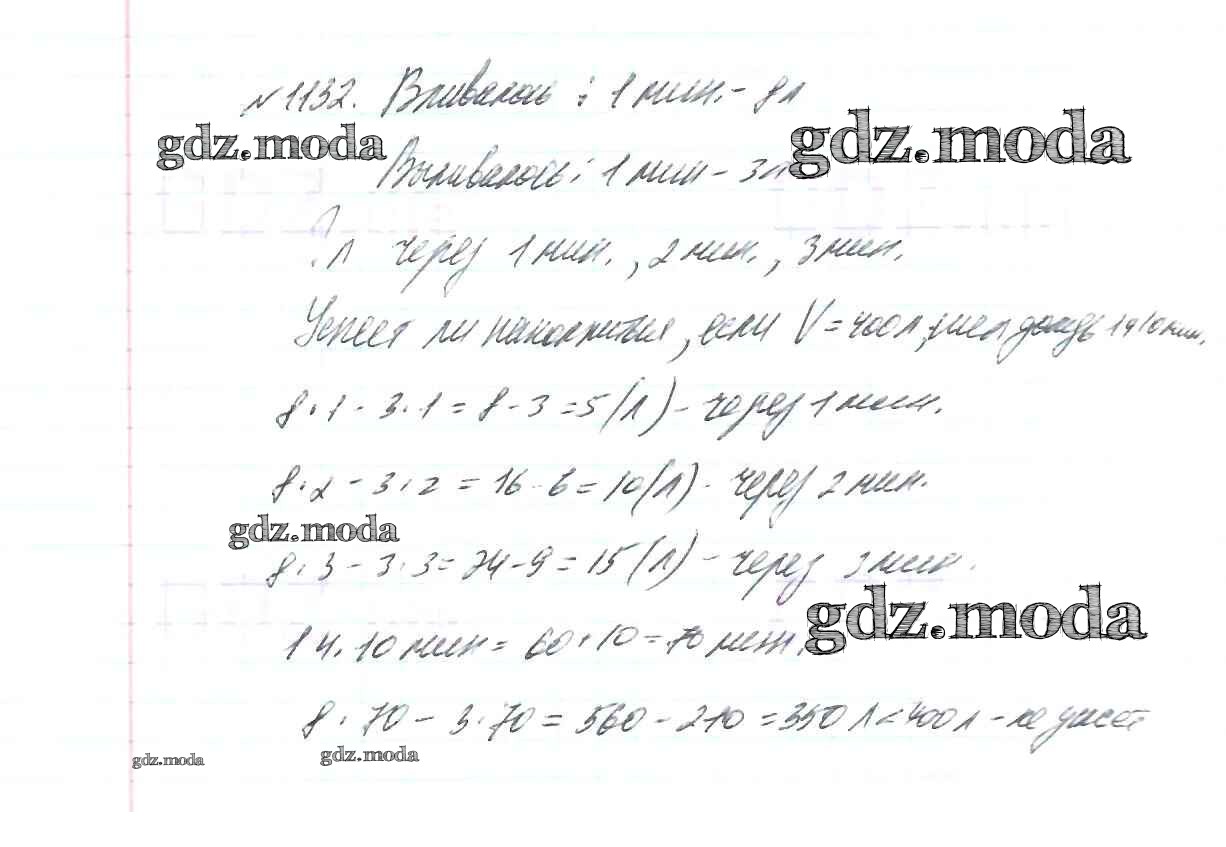 №1132. Вливалось : 1 мин. - 8 л
gdz.moda
gdz.moda
Выливалось: 1 мин - 3 л
? л через 1 мин., 2 мин., 3 мин.
Успеет ли наполнится, если V = 400 л, шел дождь 1 ч 10 мин.
8 · 1 - 3 · 1 = 8 - 3 = 5 (л) - через 1 мин.
8 · 2 - 3 · 2 = 16 - 6 = 10 (л) - через 2 мин.
gdz.moda
8 · 3 - 3 · 3 = 24 - 9 = 15 (л) - через 3 мин.
gdz.moda
1 ч. 10 мин = 60 + 10 = 70 мин.
8 · 70 - 3 · 70 = 560 - 210 = 350 л < 400 л - не успеет
gdz.moda
gdz.moda